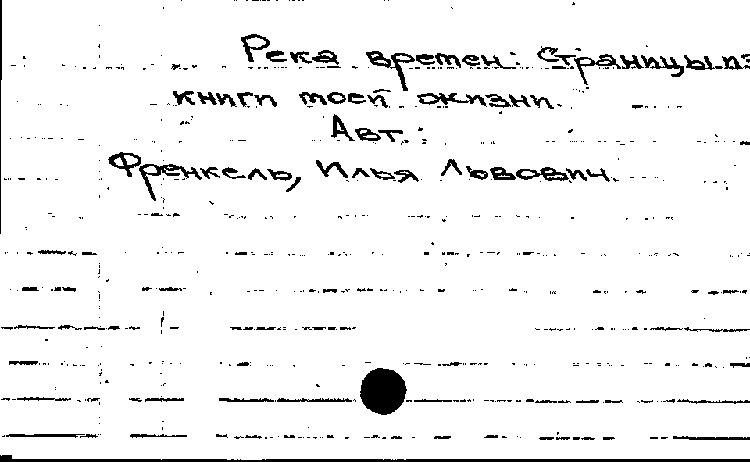 Река времен: Страницы из
книги моей жизни.
Авт.:
Френкель, Илья Львович.